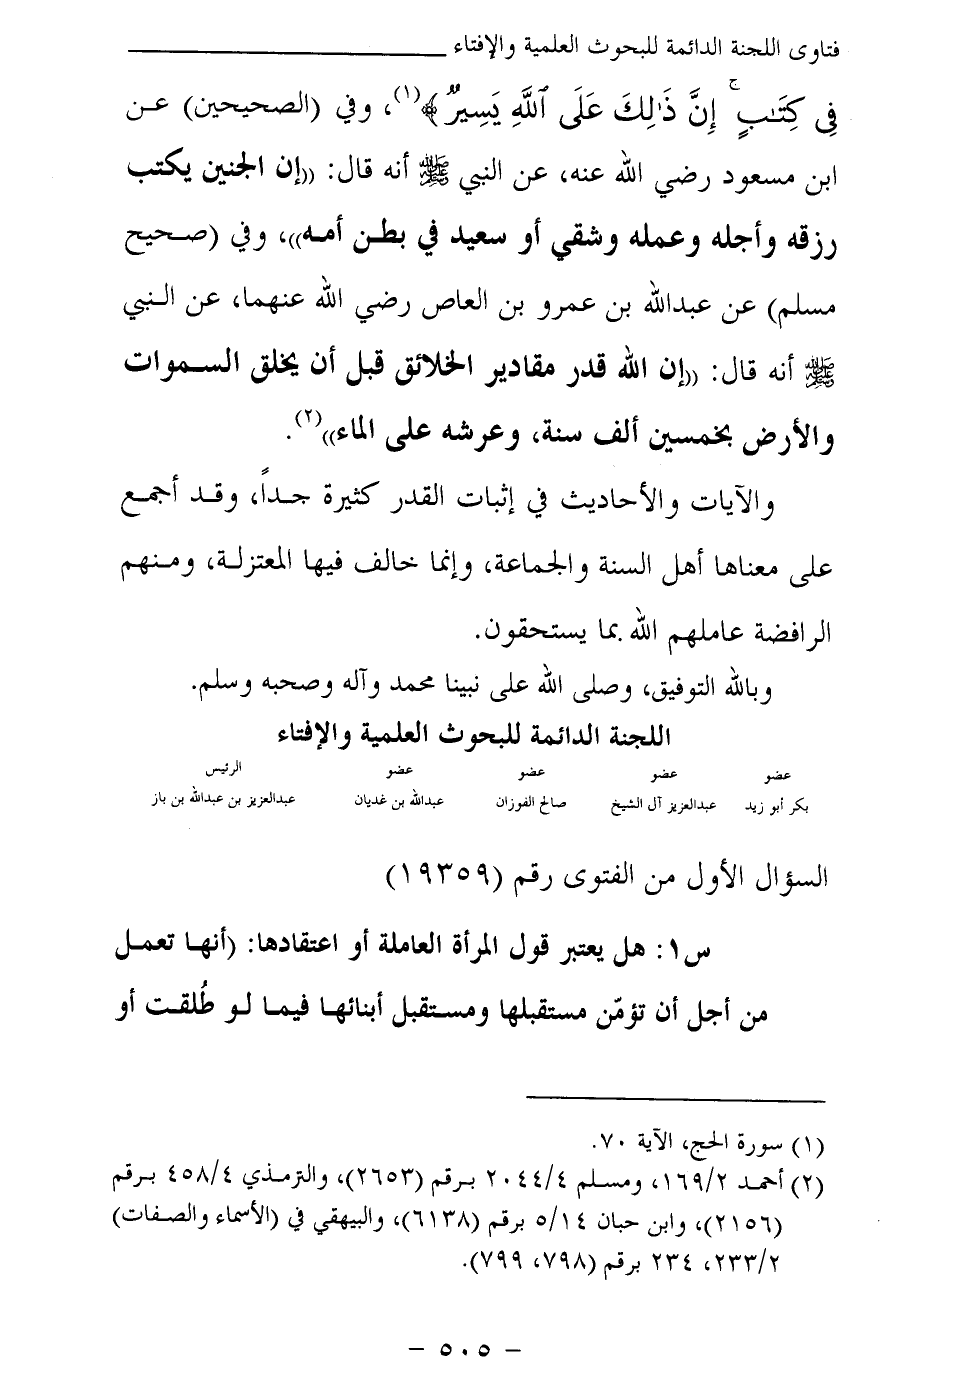 فتاوى اللجنة الدائمة للبحوث العلمية والإفتاء
فِى كِتَٰبٍ ۚ إِنَّ ذَٰلِكَ عَلَى ٱللَّهِ يَسِيرٌ ﴾(١)، وفي (الصحيحين) عن
ابن مسعود رضي الله عنه، عن النبي ﷺ أنه قال: ((إن الجنين يكتب
رزقه وأجله وعمله وشقي أو سعيد في بطن أمه))، وفي (صحيح
مسلم) عن عبدالله بن عمرو بن العاص رضي الله عنهما، عن النبي
ﷺ أنه قال: ((إن الله قدر مقادير الخلائق قبل أن يخلق السموات
والأرض بخمسين ألف سنة، وعرشه على الماء))(٢).
والآيات والأحاديث في إثبات القدر كثيرة جداً، وقد أجمع
على معناها أهل السنة والجماعة، وإنما خالف فيها المعتزلة، ومنهم
الرافضة عاملهم الله بما يستحقون.
وبالله التوفيق، وصلى الله على نبينا محمد وآله وصحبه وسلم.
اللجنة الدائمة للبحوث العلمية والإفتاء
عضو عضو عضو عضو الرئيس
بكر أبو زيد عبدالعزيز آل الشيخ صالح الفوزان عبدالله بن غديان عبدالعزيز بن عبدالله بن باز
السؤال الأول من الفتوى رقم (١٩٣٥٩)
س١: هل يعتبر قول المرأة العاملة أو اعتقادها: (أنها تعمل
من أجل أن تؤمّن مستقبلها ومستقبل أبنائها فيما لو طُلقت أو
(١) سورة الحج، الآية ٧٠.
(٢) أحمد ١٦٩/٢، ومسلم ٢٠٤٤/٤ برقم (٢٦٥٣)، والترمذي ٤٥٨/٤ برقم
(٢١٥٦)، وابن حبان ٥/١٤ برقم (٦١٣٨)، والبيهقي في (الأسماء والصفات)
٢٣٣/٢، ٢٣٤ برقم (٧٩٨، ٧٩٩).
- ٥٠٥ -